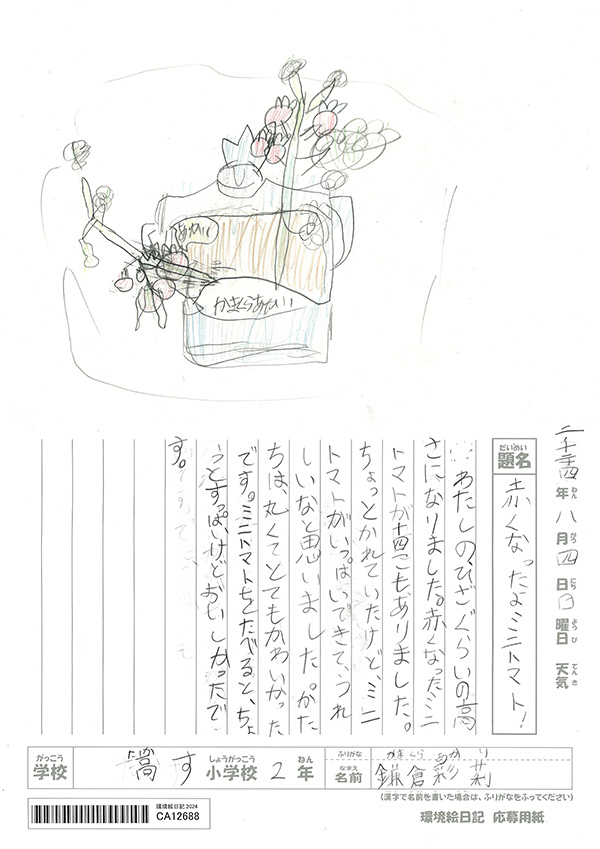 あかり
かまくらあかり
二千二十四年ねん八月がつ四日にち日曜日ようび 天気てんき
題名だいめい 赤くなったよミニトマト!
わたしのひざぐらいの高
さになりました。赤くなったミニ
トマトが十四こもありました。
ちょっとかれていたけど、ミニ
トマトがいっぱいできて、うれ
しいなと思いました。かた
ちは、丸くてとてもかわいかった
です。ミニトマトをたべると、ちょ
っとすっぱいけどおいしかったで
す。
がっこう 学校 しょうがっこう 小学校 2 ねん 年
ふりがな かまくら あかり
なまえ 名前 鎌倉彩莉
(漢字で名前を書いた場合は、ふりがなをふってください)
環境絵日記2024
CA12688
環境絵日記 応募用紙